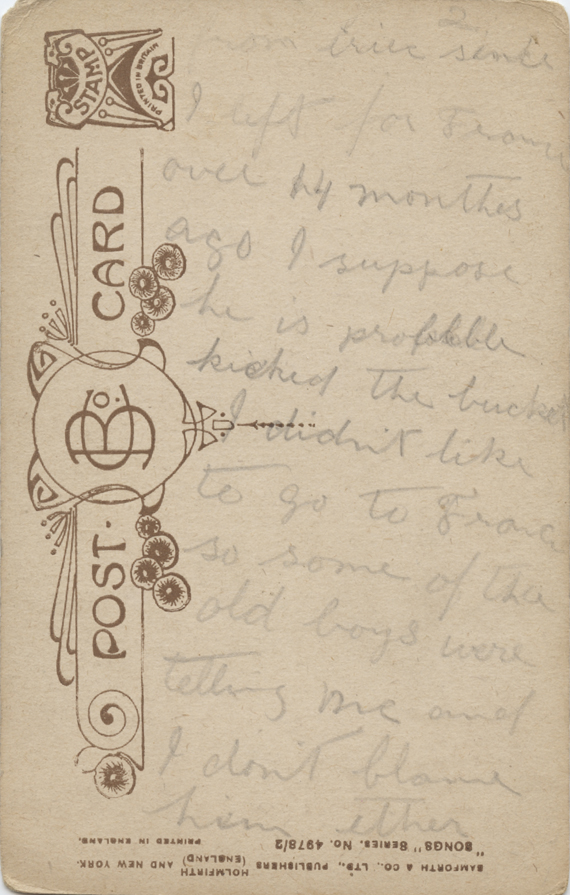 2
from Eric since
I left for France
over 14 months
ago I suppose
he is probbble
kicked the bucket
I didn't like
to go to France
so some of the
old boys were
telling me and
I don't blame
him ether
STAMP
PRINTED IN BRITAIN
POST·CARD
B Co.
BAMFORTH & CO., LTD., PUBLISHERS HOLMFIRTH (ENGLAND) AND NEW YORK.
"SONGS" SERIES. No. 4978/2 PRINTED IN ENGLAND.